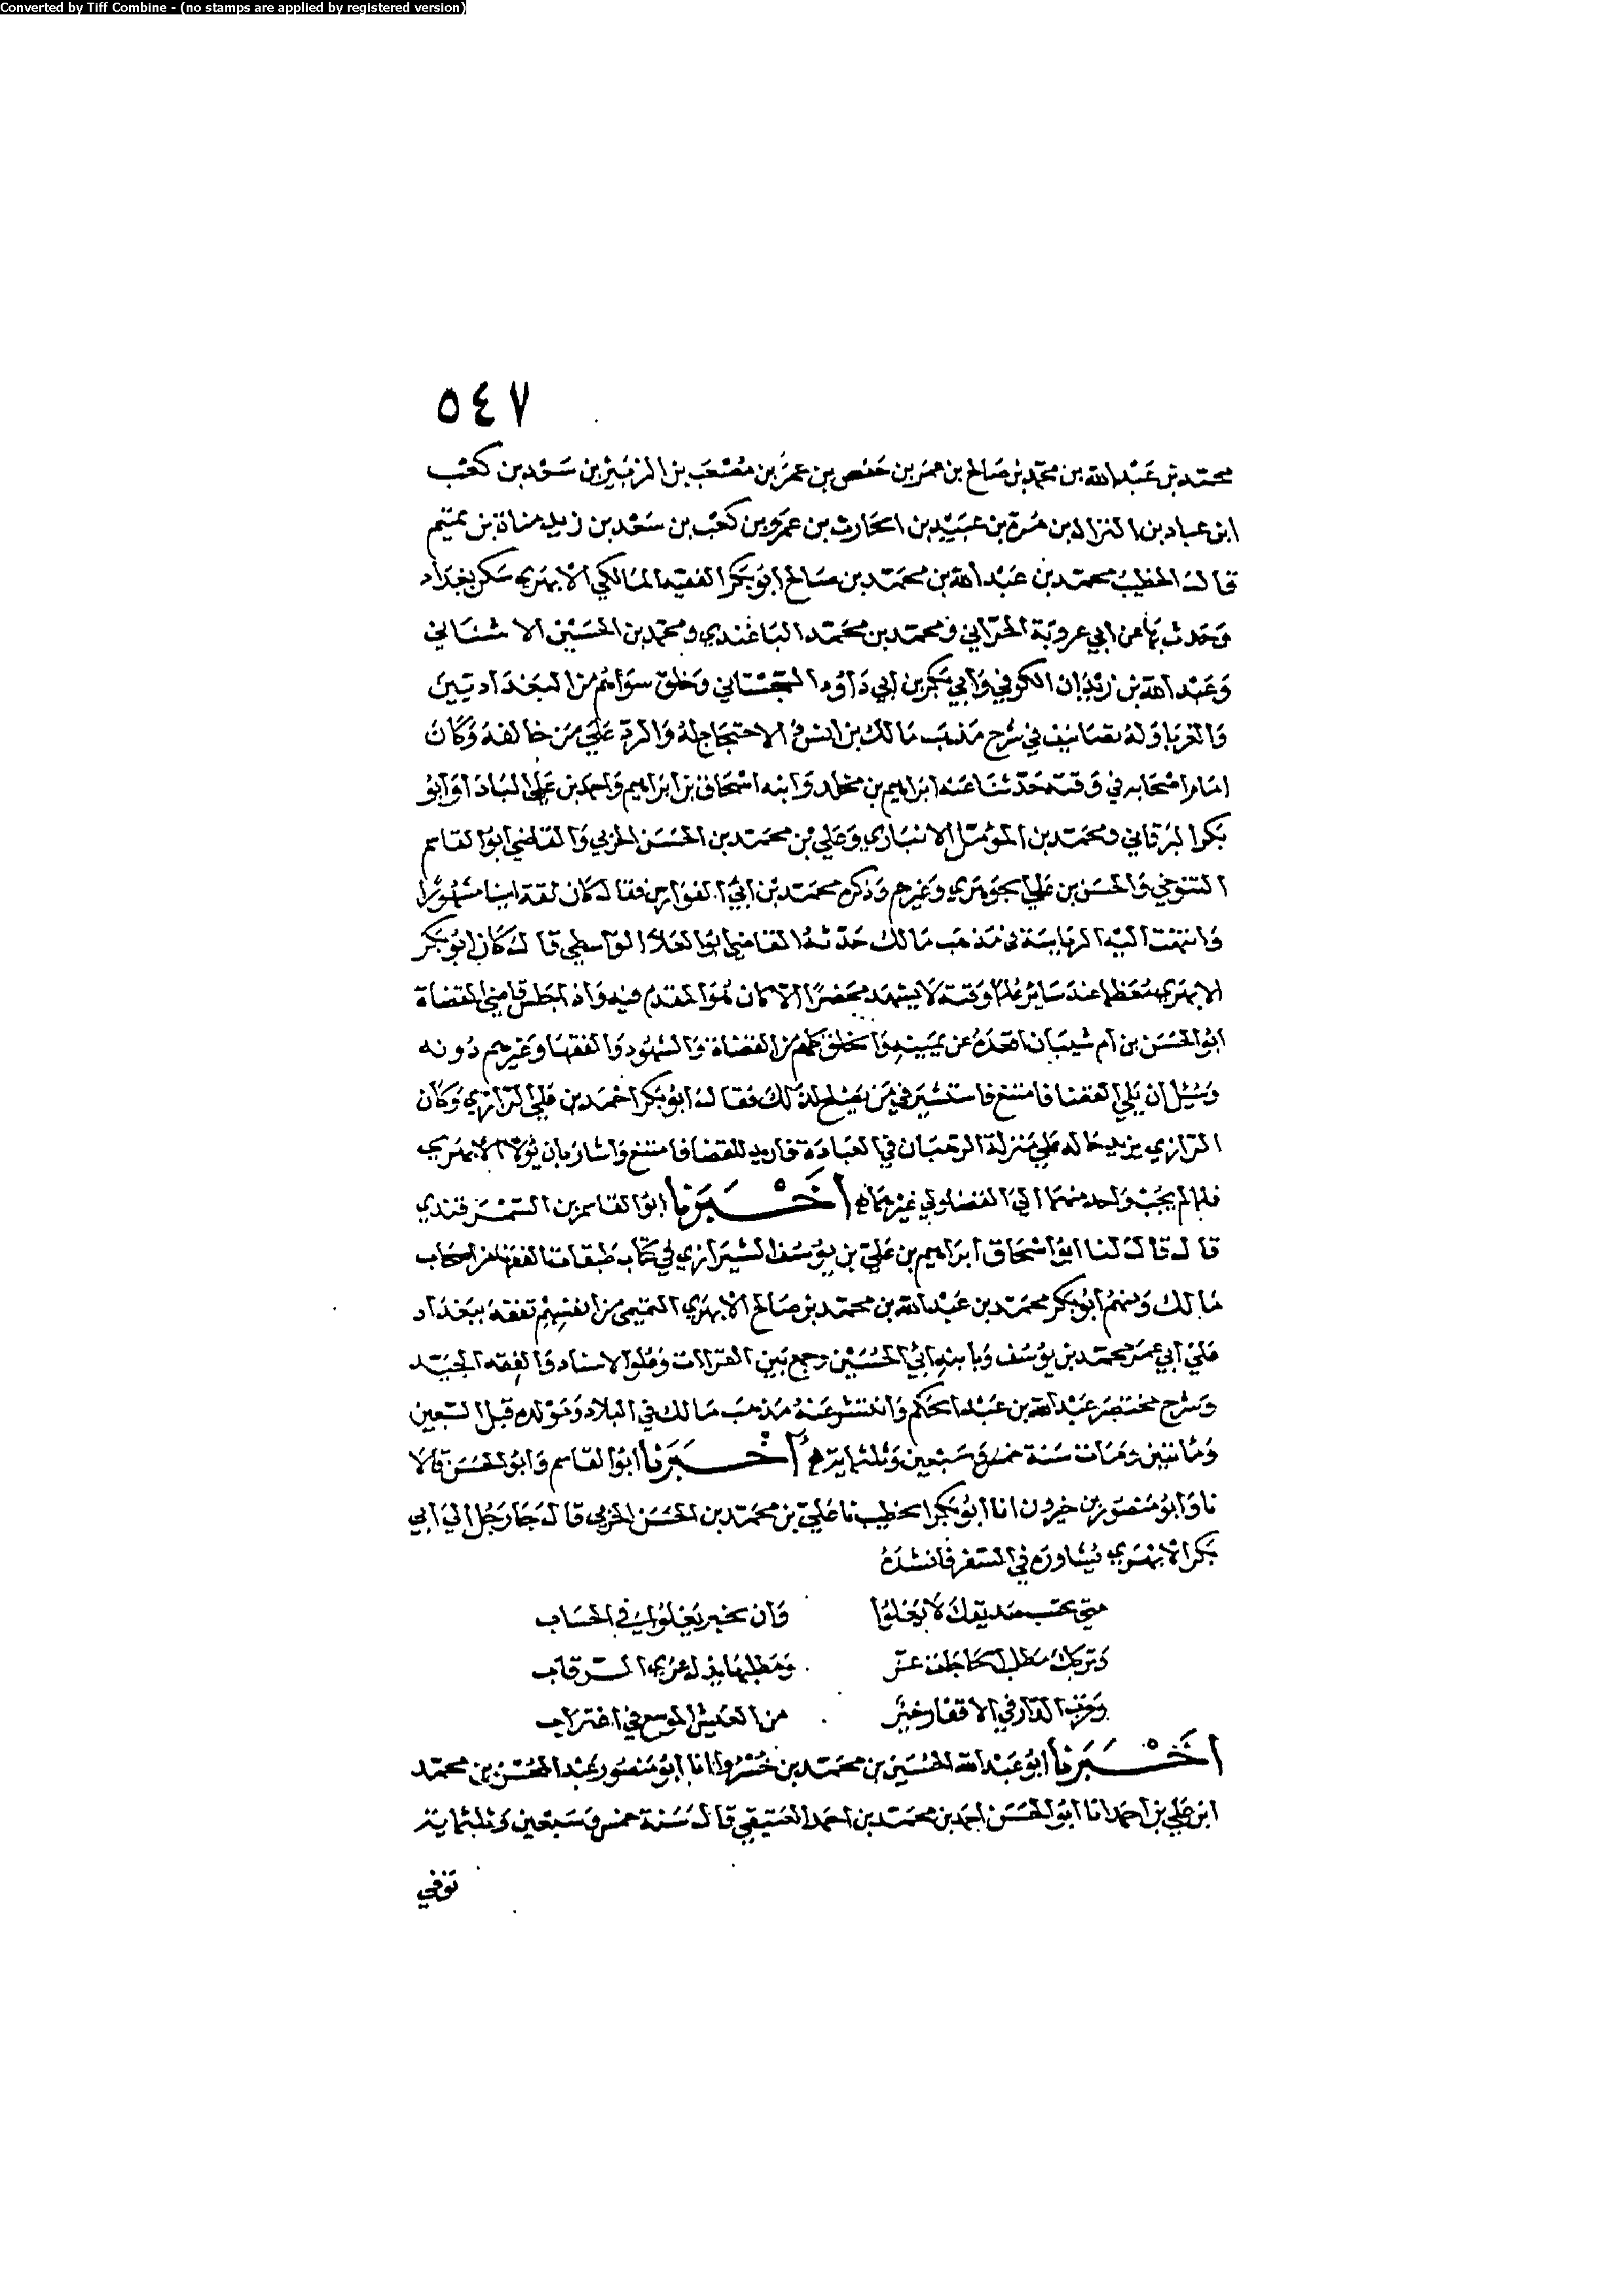 Converted by Tiff Combine - (no stamps are applied by registered version)
٥٤٧
محمد بن عبد الله بن محمد بن صالح بن عمر بن حفص بن عمر بن مصعب بن الزبير بن سعد بن كعب
ابن عباد بن النزال بن مرة بن عبيد بن الحارث بن عمرو بن كعب بن سعد بن زيد مناة بن تميم
قال الخطيب محمد بن عبد الله بن محمد بن صالح ابو بكر الفقيه المالكي الابهري سكن بغداد
وحدث بها عن ابي عروبة الحراني ومحمد بن محمد الباغندي ومحمد بن الحسين الاشناني
وعبد الله بن زيدان الكوفي وابي بكر بن ابي داود السجستاني وخلق سواهم من البغداديين
والغربا وله تصانيف في شرح مذهب مالك بن انس والاحتجاج له والرد علي من خالفه وكان
امام اصحابه في وقته حدثنا عنه ابراهيم بن مخلد وابنه اسحاق بن ابراهيم واحمد بن علي البادا وابو
بكر البرقاني ومحمد بن المؤمل الانباري وعلي بن محمد بن الحسن الحربي والقاضي ابو القاسم
التنوخي والحسن بن علي الجوهري وغيرهم وذكره محمد بن ابي الفوارس فقال كان ثقة امينا مشهورا
وانتهت اليه الرياسة في مذهب مالك حدثنا القاضي ابو العلا الواسطي قال كان ابو بكر
الابهري معظما عند ساير علما وقته لا يشهد محضرا الا كان هو المقدم فيه واذا جلس قاضي القضاة
ابو الحسن بن ام شيبان اقعده عن يمينه والخلق كلهم من القضاة والشهود والفقها وغيرهم دونه
وسئل ان يلي القضا فامتنع فاستشير في من يصلح لذلك فقال ابو بكر احمد بن علي الرازي وكان
الرازي يزيد حاله علي منزلة الرهبان في العبادة فاريد للقضا فامتنع واشار بان يولا الابهري
فلما لم يجب واحد منهما الي القضا ولي غيرهما اخبرنا ابو القاسم بن السمرقندي
قال قال لنا ابو اسحاق ابراهيم بن علي بن يوسف الشيرازي في كتاب طبقات الفقها من اصحاب
مالك ومنهم ابو بكر محمد بن عبد الله بن محمد بن صالح الابهري التميمي من انفسهم تفقه ببغداد
علي ابي عمر محمد بن يوسف وبابنه ابي الحسين وجمع بين القراات وعلو الاسناد والفقه الجيد
وشرح مختصر عبد الله بن عبد الحكم وانتشر عنه مذهب مالك في البلاد ومولده قبل التسعين
ومائتين ومات سنة خمس وسبعين وثلثماية اخبرنا ابو القاسم وابو الحسن قالا
نا وابو منصور بن خيرون انا ابو بكر الخطيب نا علي بن محمد بن الحسن الحربي قال جا رجل الي ابي
بكر الابهري يشاوره في السفر فانشده
متي تحسب صديقك لا يغلوا وان تخبر يغلوا في الحساب
وتركك مطلب الحاجات عز ومطلبها يذل عري الرقاب
وقرب الدار في الاقتار خير من العيش الموسع في اغتراب
اخبرنا ابو عبد الله الحسين بن محمد بن خسرو انا ابو منصور عبد المحسن بن محمد
ابن علي بن احمد انا ابو الحسن احمد بن محمد بن احمد العتيقي قال سنة خمس وسبعين وثلثماية
توفي